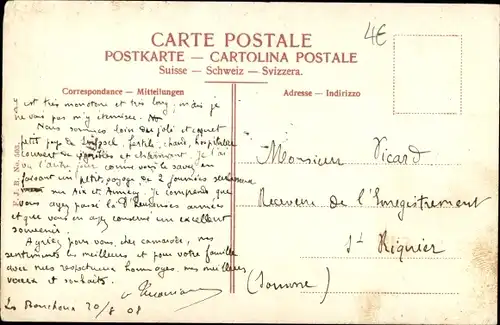 4€
CARTE POSTALE
POSTKARTE — CARTOLINA POSTALE
Suisse — Schweiz — Svizzera.
Correspondance — Mitteilungen
Adresse — Indirizzo
est très monotone et très long; mais je
ne vais pas m'y
Nous sommes loin du joli et coquet
petit pays de fertile, chaud, hospitalier
couvert de et charmant. Je l'ai
vu l'autre comme vous le savez en
faisant un petit voyage de 2 journées
sur Aix et Annecy. Je comprends que
vous ayez passé là d'heureuses années
et que vous en ayez conservé un excellent
souvenir.
Agréez pour vous, cher camarade, mes
sentiments les meilleurs et pour votre famille
avec mes respectueux hommages, mes meilleurs
voeux et souhaits.
Les Bouchoux 20/8 08
Monsieur Vicard
Receveur de l'Enregistrement
St Riquier
(Somme)